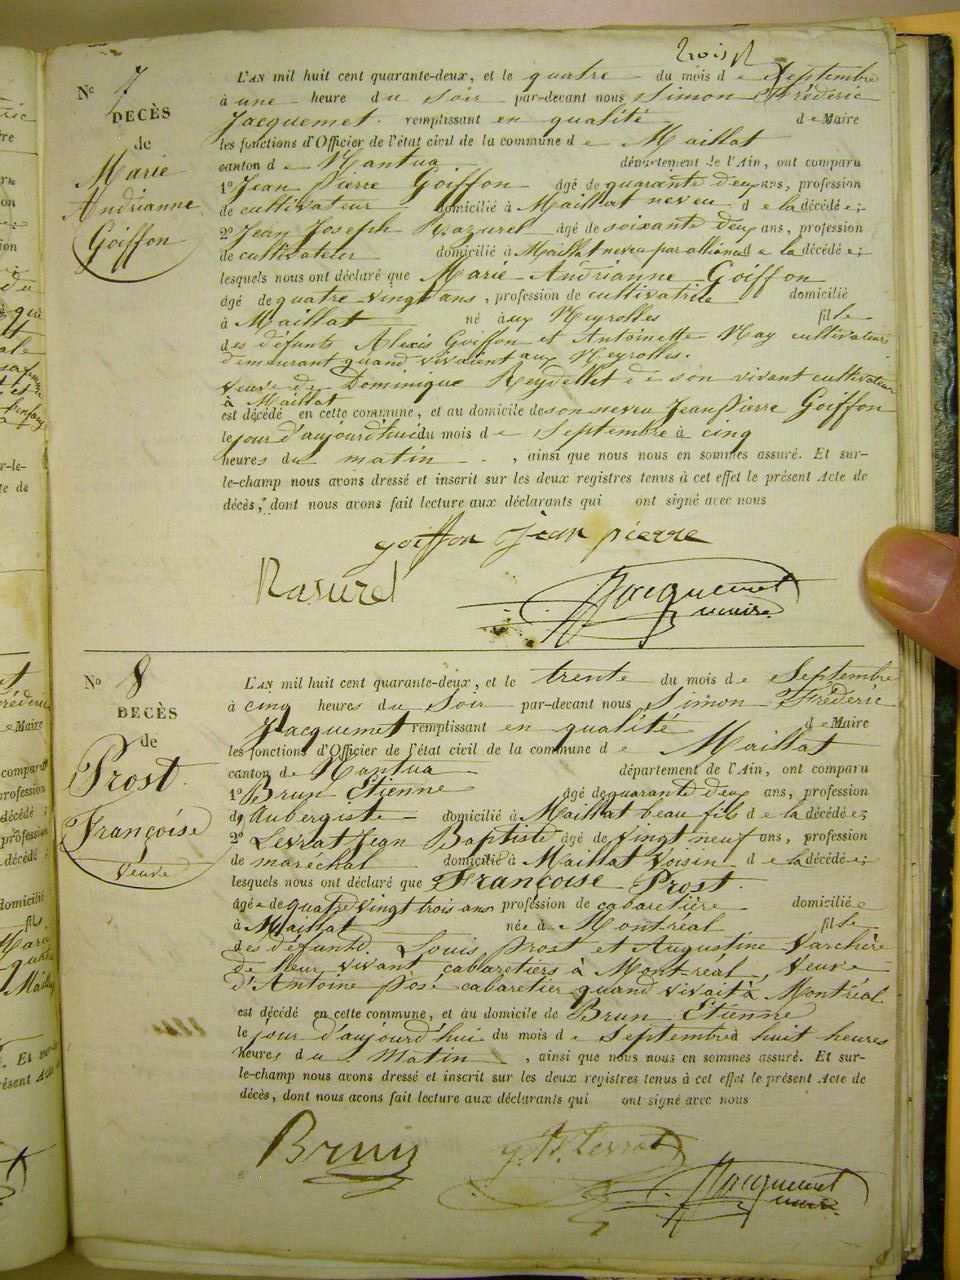 N° 7
DECÈS
de
Marie
Andrianne
Goiffon
L'AN mil huit cent quarante-deux, et le quatre du mois de Septembre
à une heure du soir par-devant nous Simon Fréderic
Jacquemet remplissant en qualité de Maire
les fonctions d'Officier de l'état civil de la commune de Maillat
canton de Nantua département de l'Ain, ont comparu
1° Jean Pierre Goiffon âgé de quarante deux ans, profession
de cultivateur domicilié à Maillat neveu de la décédée;
2° Jean Joseph Razurel âgé de soixante deux ans, profession
de cultivateur domicilié à Maillat neveu par alliance de la décédée;
lesquels nous ont déclaré que Marie Andrianne Goiffon
âgé de quatre vingt ans, profession de cultivatrice domicilié
à Maillat né aux Neyrolles fille
des défunts Alexis Goiffon et Antoinette May cultivateurs
demeurant quand vivaient aux Neyrolles.
veuve de Dominique Reydellet de son vivant cultivateur
à Maillat
est décédé en cette commune, et au domicile de son neveu Jean Pierre Goiffon
le jour d'aujourd'hui du mois de Septembre à cinq
heures du matin, ainsi que nous nous en sommes assuré. Et sur-
le-champ nous avons dressé et inscrit sur les deux registres tenus à cet effet le présent Acte de
décès, dont nous avons fait lecture aux déclarants qui ont signé avec nous
goiffon jean pierre
Rasurel Jacquemet
maire
N° 8
DECÈS
de
Prost
Françoise
veuve
L'AN mil huit cent quarante-deux, et le trente du mois de Septembre
à cinq heures du soir par-devant nous Simon Fréderic
Jacquemet remplissant en qualité de Maire
les fonctions d'Officier de l'état civil de la commune de Maillat
canton de Nantua département de l'Ain, ont comparu
1° Brun Etienne âgé de quarante deux ans, profession
d'Aubergiste domicilié à Maillat beau fils de la décédée;
2° Levrat Jean Baptiste âgé de vingt neuf ans, profession
de maréchal domicilié à Maillat Voisin de la décédée;
lesquels nous ont déclaré que Françoise Prost
âgée de quatre vingt trois ans profession de cabaretière domiciliée
à Maillat née à Montréal fille
des défunts Louis Prost et Augustine Varchère
de leur vivant cabaretiers à Montréal, veuve
d'Antoine José cabaretier quand vivait à Montréal
est décédé en cette commune, et au domicile de Brun Etienne
le jour d'aujourd'hui du mois de Septembre à huit heures
heures du Matin, ainsi que nous nous en sommes assuré. Et sur-
le-champ nous avons dressé et inscrit sur les deux registres tenus à cet effet le présent Acte de
décès, dont nous avons fait lecture aux déclarants qui ont signé avec nous
Brun J. B. Levrat Jacquemet
maire